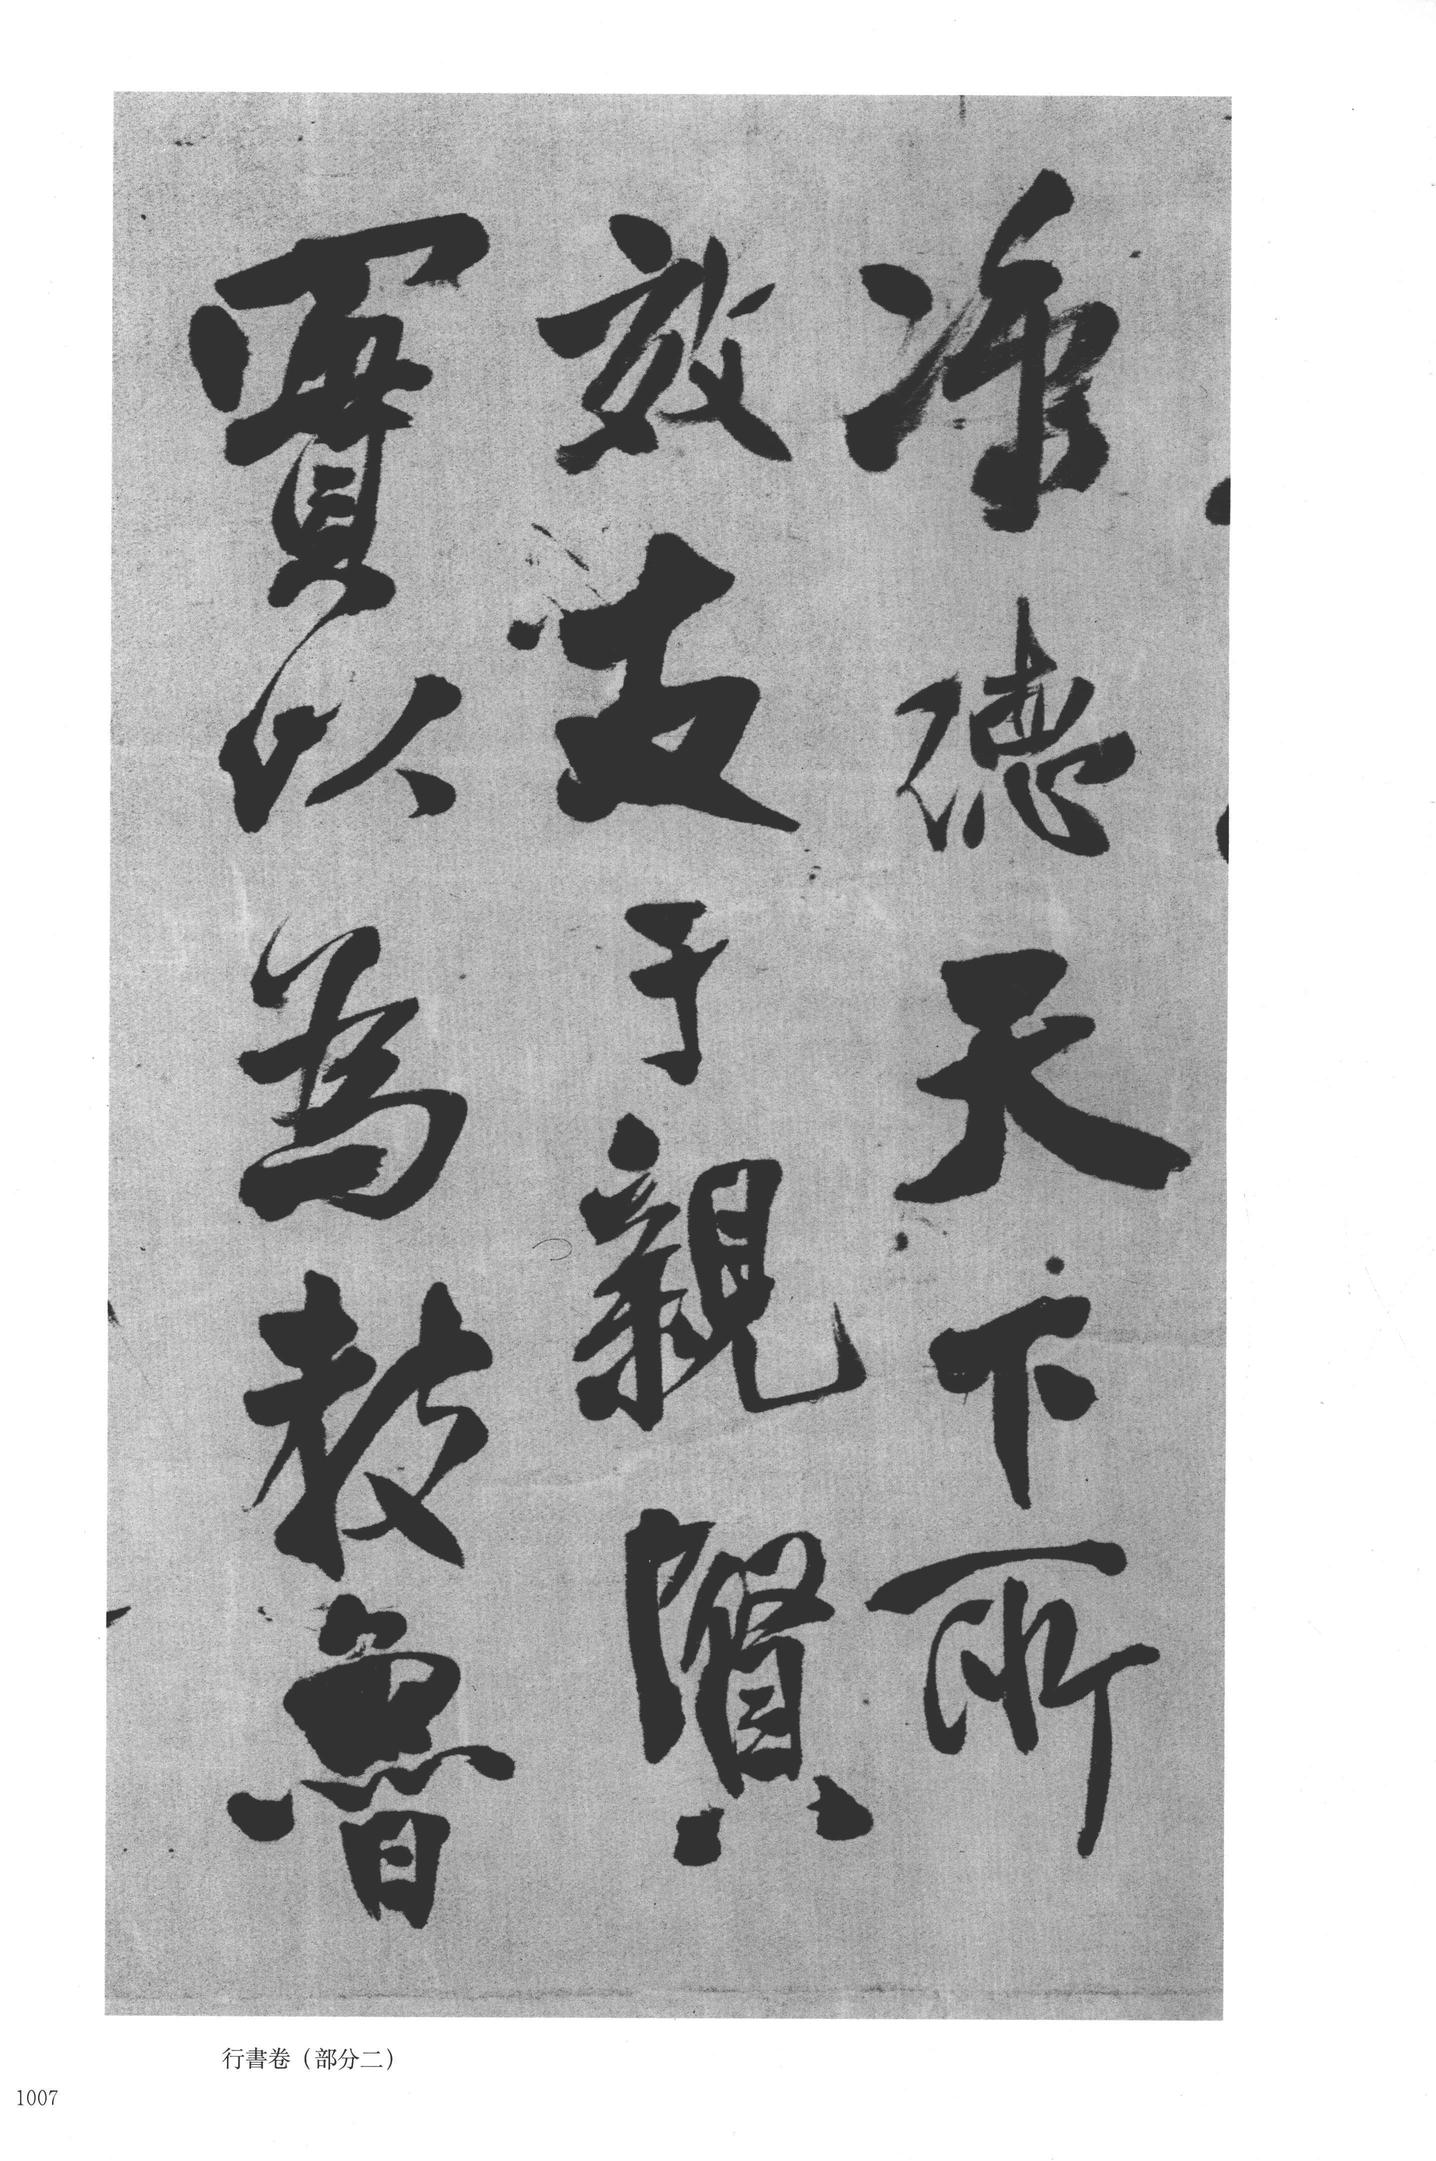 德天下所
效友于親賢
實以為教魯
行書卷（部分二）
1007